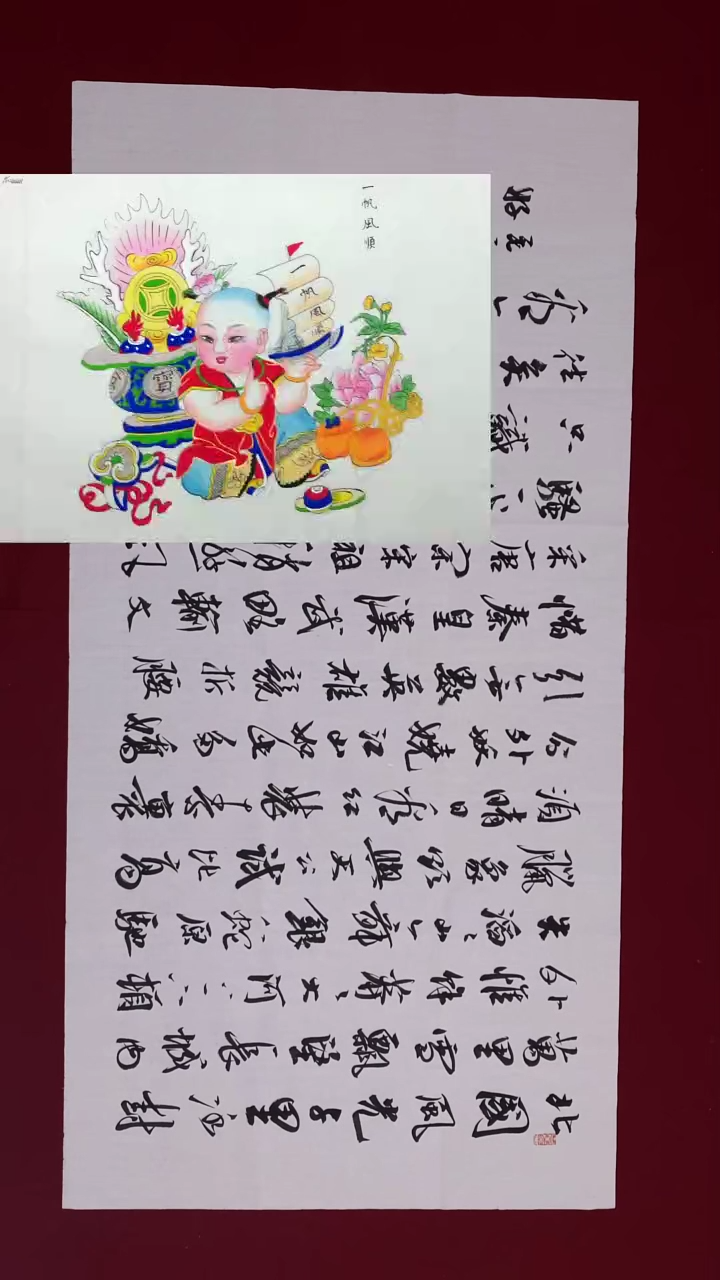 一帆風順
一帆風順
北國風光千里冰封
萬里雪飄望長城內
外惟餘莽莽大河上下頓
失滔滔山舞銀蛇原馳
臘象欲與天公試比高
須晴日看紅裝素裹
分外妖嬈江山如此多嬌
引無數英雄競折腰
惜秦皇漢武略輸文
采唐宗宋祖稍遜
騷一
只識
往矣
看